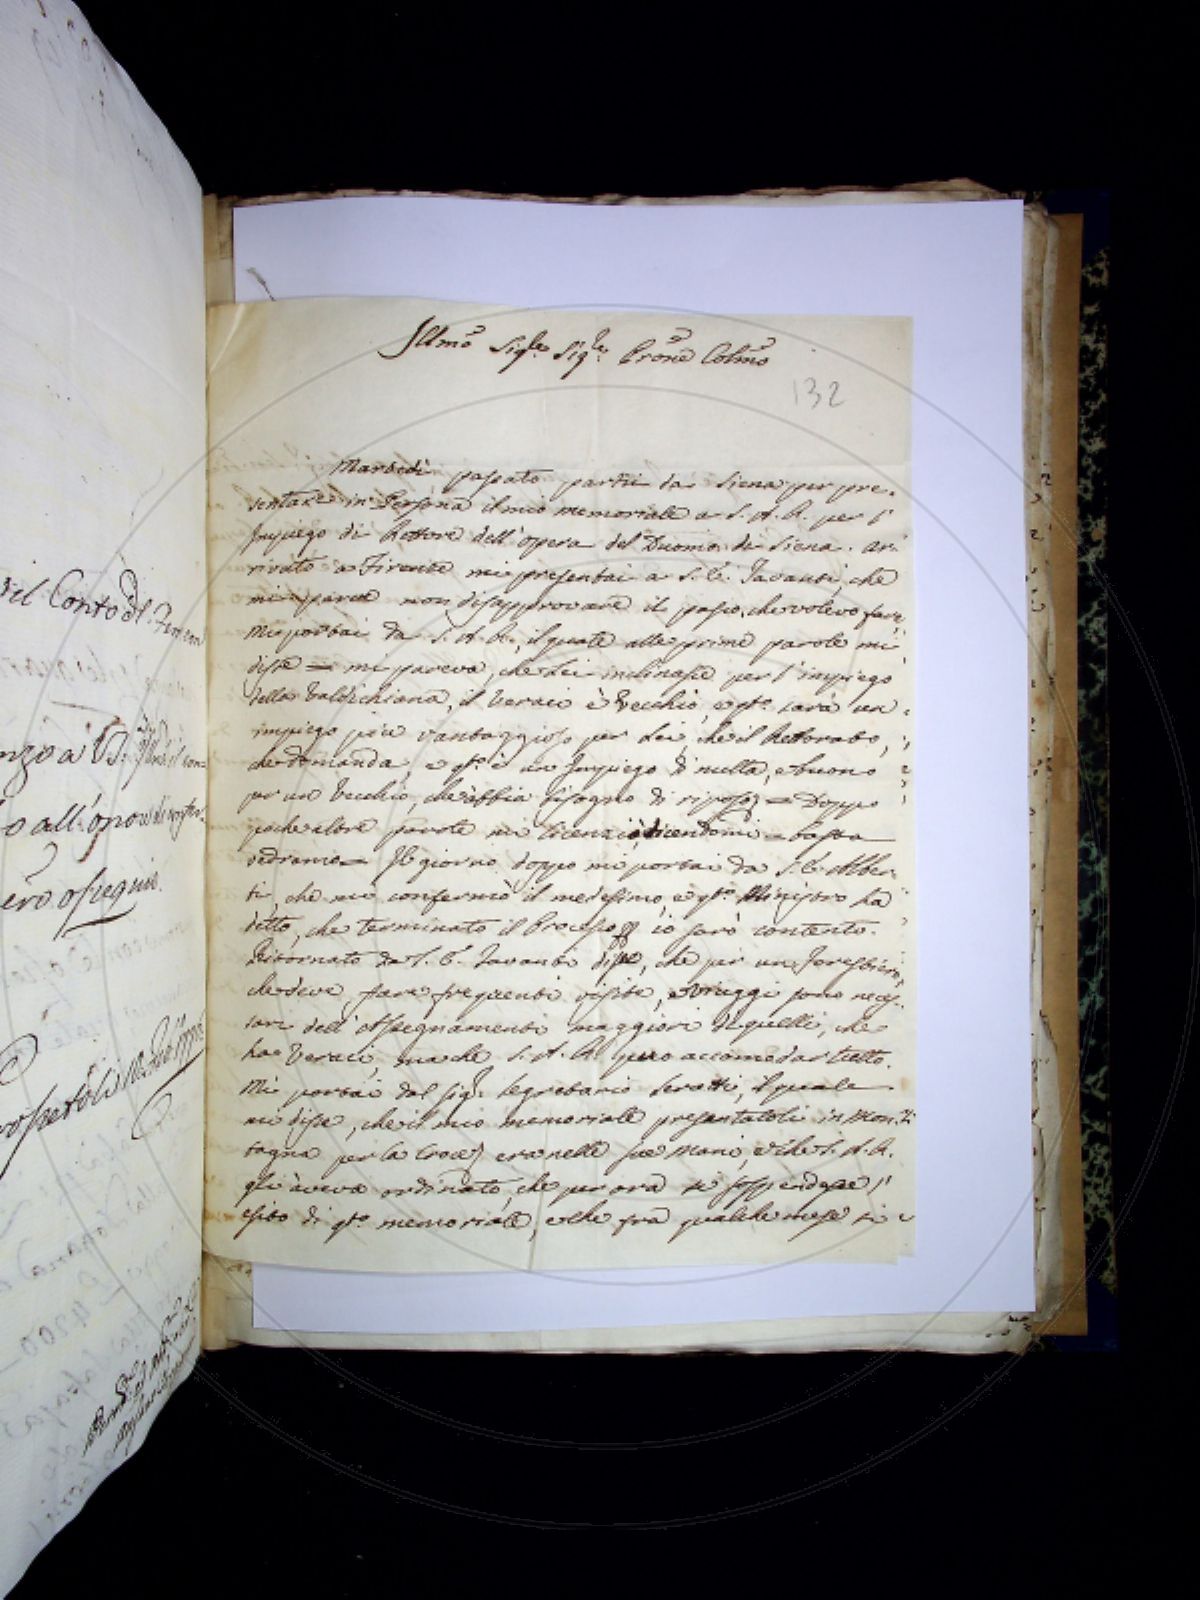 Illmo Sig.re Sig.re Prone Colmo
132
Martedì passato partii da Siena per pre-
sentare in Persona il mio memoriale a S. A. R. per l'
Impiego di Rettore dell'opera del Duomo di Siena. Ar-
rivato a Firenze mi presentai a S. E. Tavanti, che
mi parve non disapprovare il passo, che volevo fare,
mi portai da S. A. R., il quale alle prime parole mi
disse = mi pareva, che Lei inclinasse per l'impiego
della Valdichiana, il Veraci è Vecchio, e qto sarà un
impiego più vantaggioso per Lei, che il Rettorato,
che domanda, e qto è un Impiego di nulla, e buono
per un Vecchio, che abbia bisogno di riposo = Doppo
poche altre parole mi licenziò, dicendomi = basta
vedremo = Il giorno doppo mi portai da S. E. Alber-
ti, che mi confermò il medesimo, e qto Ministro ha
detto, che terminato il Processo io sarò contento.
Ritornato da S. E. Tavanti disse, che per un Forestiero,
che deve fare frequenti visite, e viaggi sono neces-
sari dell'Assegnamenti maggiori di quelli, che
ha Veraci, ma che S. A. R. può accomodar tutto.
Mi portai dal Sig.r Segretario Seratti, il quale
mi disse, che il mio memoriale presentatoli in Mon-
tagna per la Croce, era nelle sue Mani, e che S. A. R.
gli aveva ordinato, che per ora si sospendesse l'
esito di qto memoriale, e che fra qualche mese si
il Conto
all'
ossequio
4200